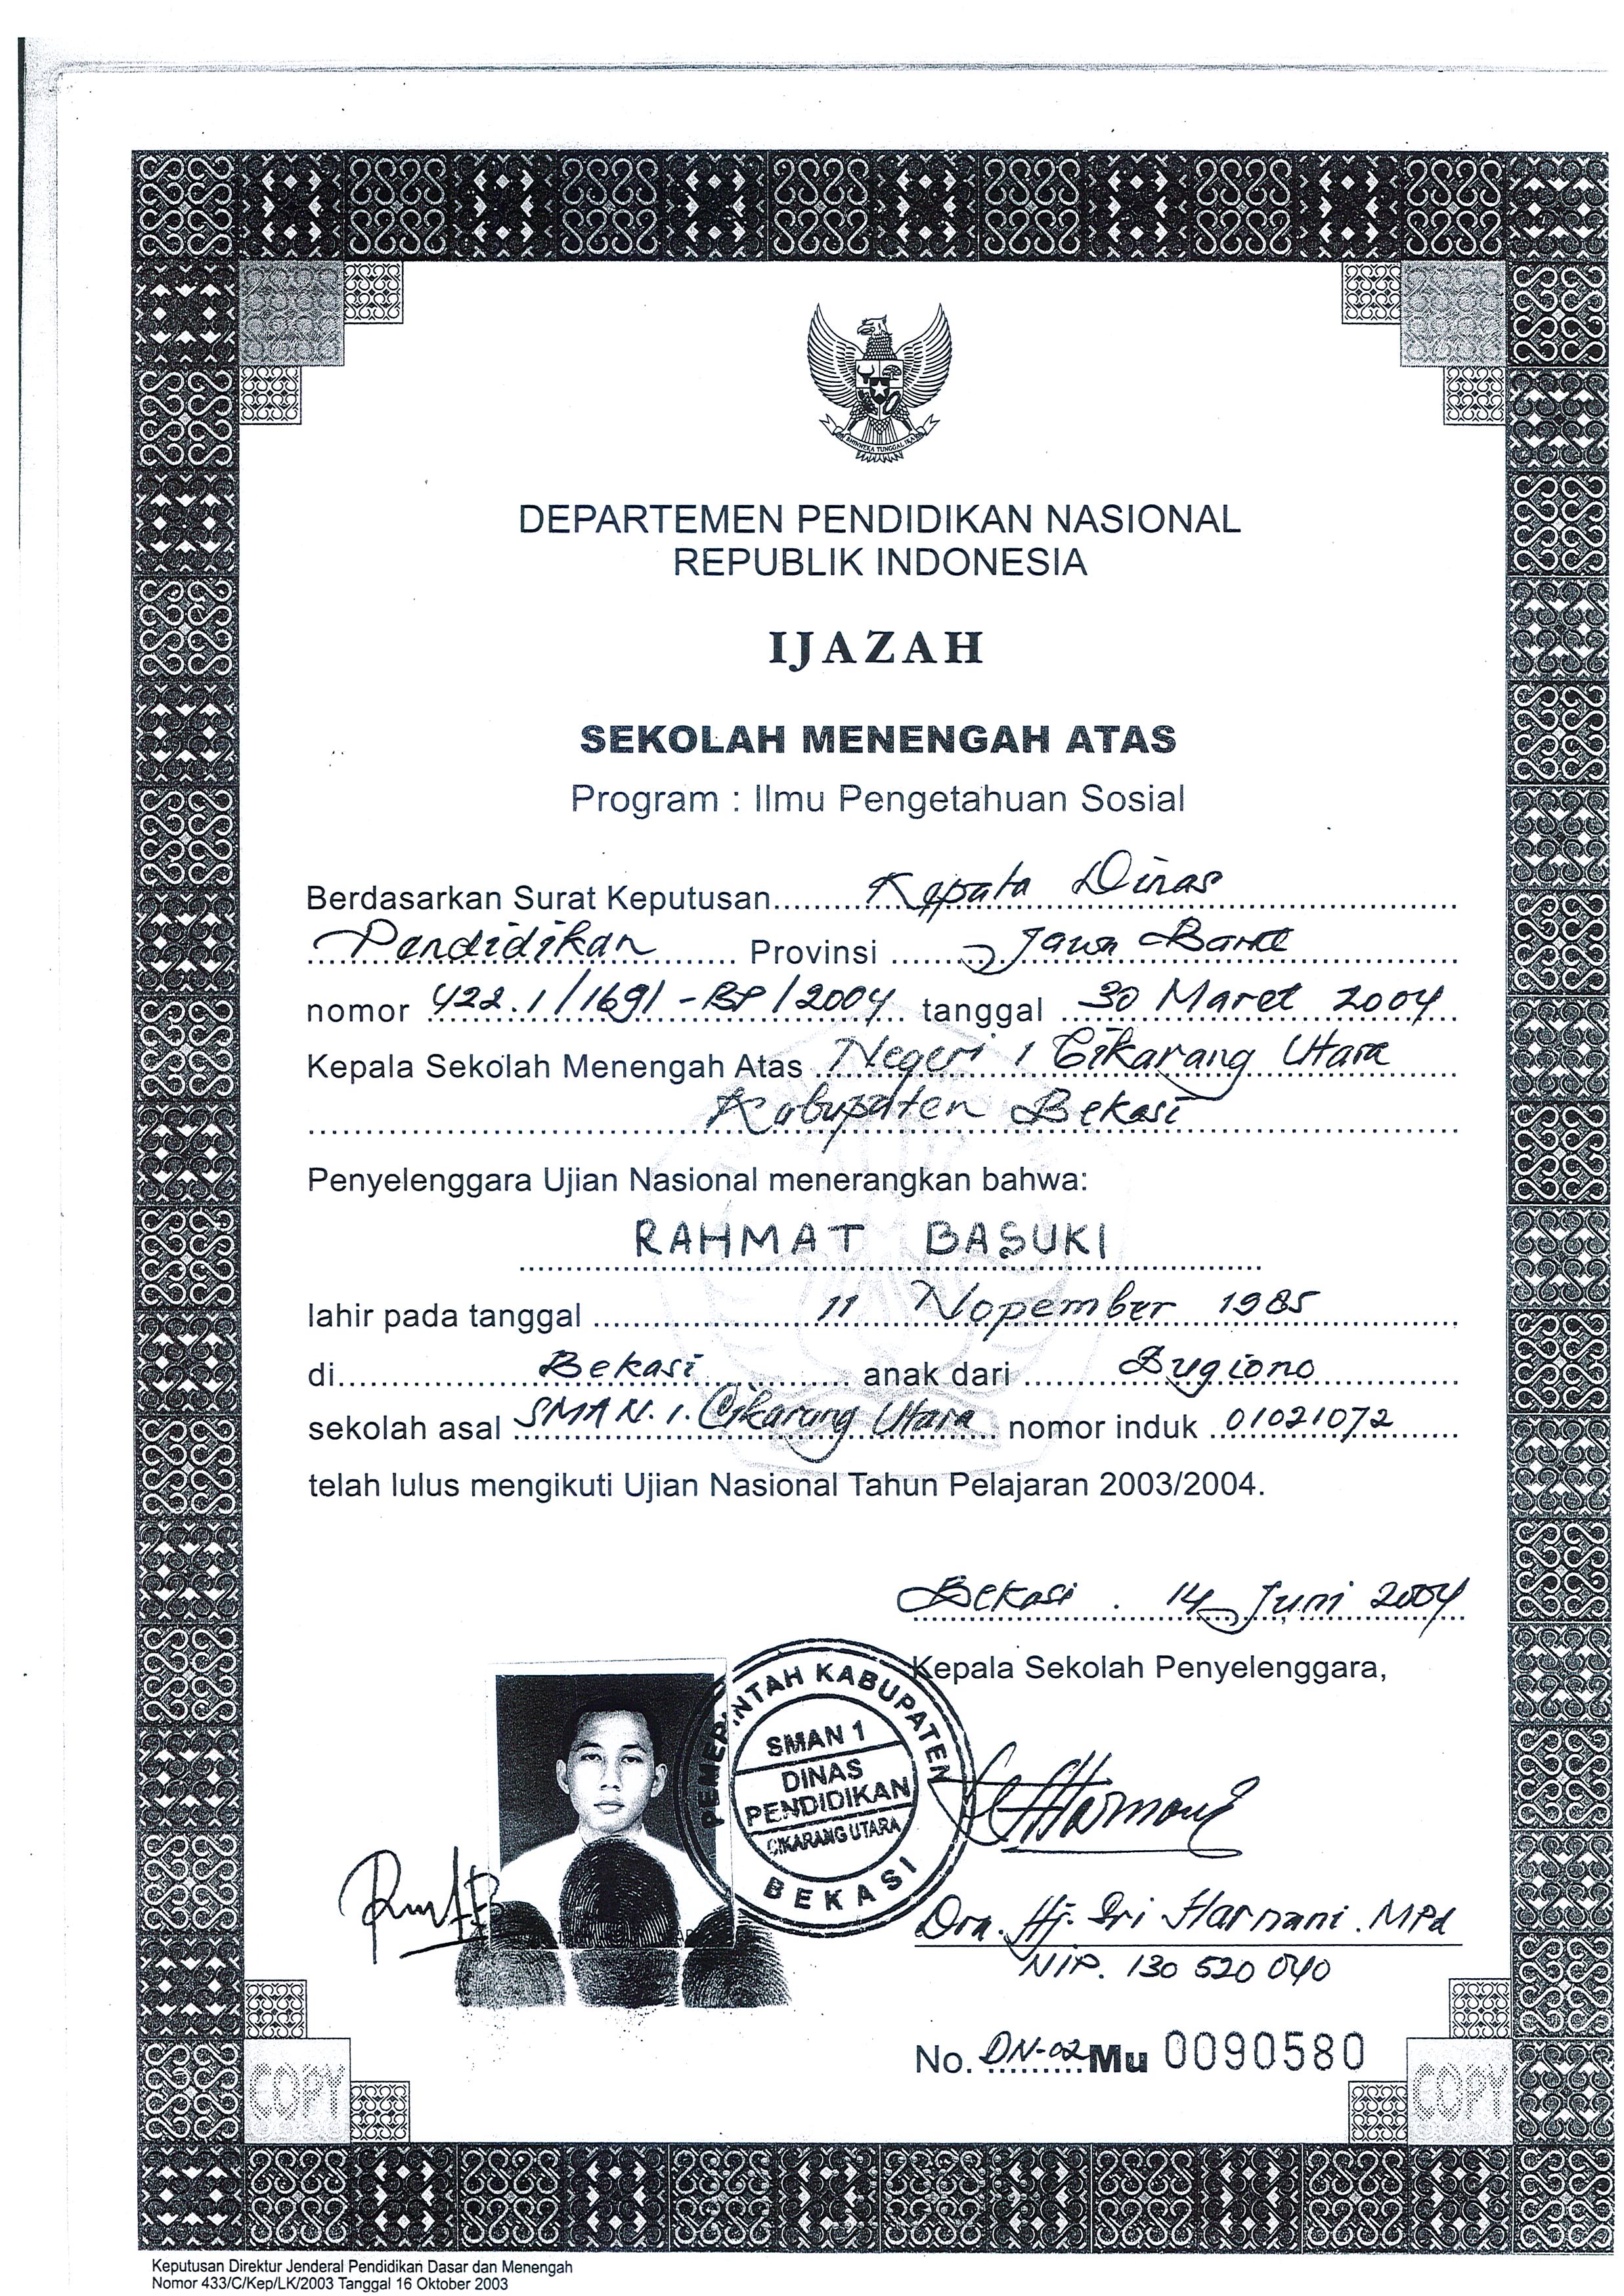 BHINNEKA TUNGGAL IKA
DEPARTEMEN PENDIDIKAN NASIONAL
REPUBLIK INDONESIA
IJAZAH
SEKOLAH MENENGAH ATAS
Program : Ilmu Pengetahuan Sosial
Berdasarkan Surat Keputusan Kepala Dinas
Pendidikan Provinsi Jawa Barat
nomor 422.1/1691-BP/2004 tanggal 30 Maret 2004
Kepala Sekolah Menengah Atas Negeri 1 Cikarang Utara
Kabupaten Bekasi
Penyelenggara Ujian Nasional menerangkan bahwa:
RAHMAT BASUKI
lahir pada tanggal 11 Nopember 1985
di Bekasi anak dari Sugiono
sekolah asal SMAN.1. Cikarang Utara nomor induk 01021072
telah lulus mengikuti Ujian Nasional Tahun Pelajaran 2003/2004.
Bekasi . 14 Juni 2004
Kepala Sekolah Penyelenggara,
PEMERINTAH KABUPATEN
SMAN 1
DINAS
PENDIDIKAN
CIKARANG UTARA
BEKASI
Dra. Hj. Sri Harnani . MPd
NIP. 130 520 040
No. DN-02 Mu 0090580
COPY COPY
Keputusan Direktur Jenderal Pendidikan Dasar dan Menengah
Nomor 433/C/Kep/LK/2003 Tanggal 16 Oktober 2003